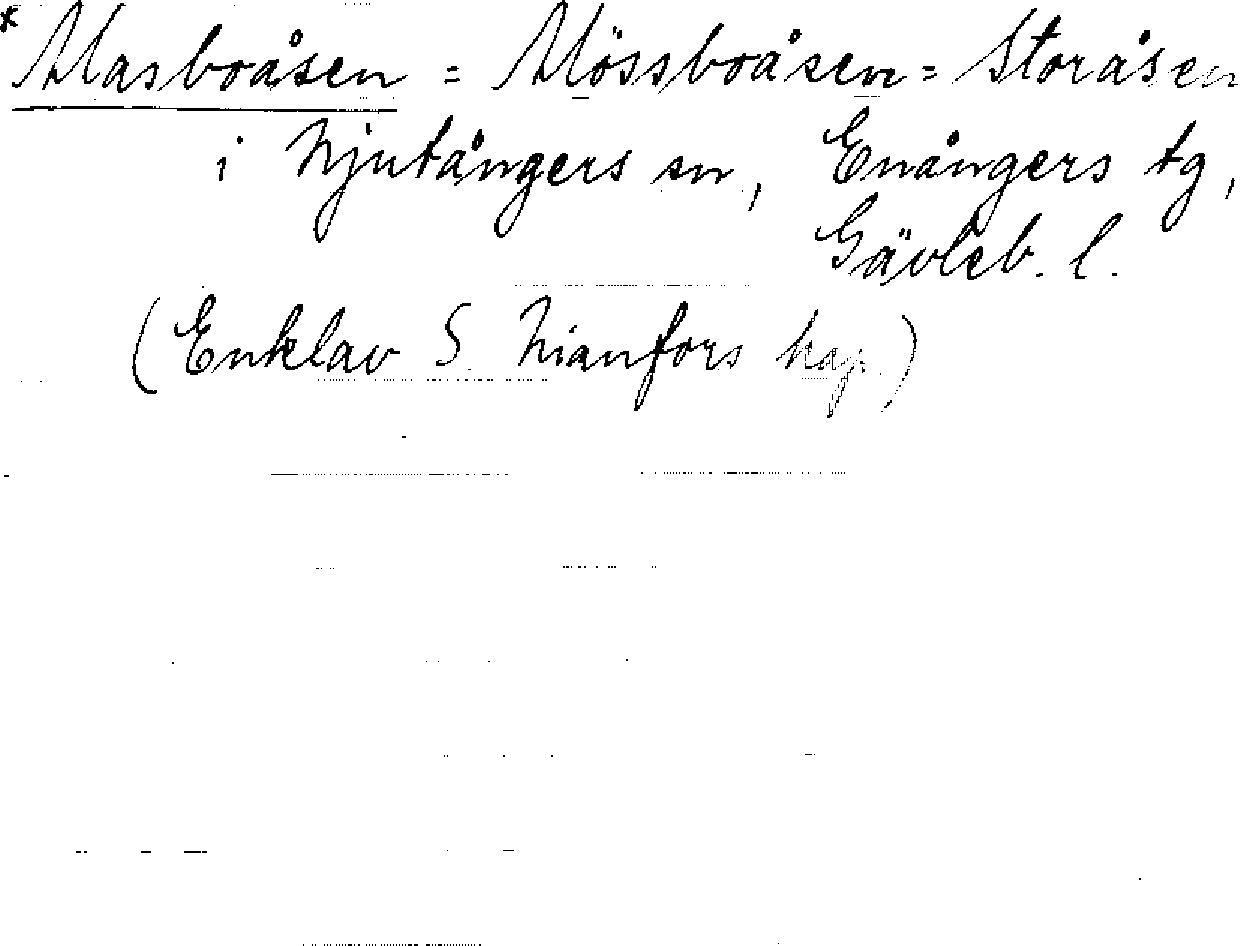 *Masboåsen = Mössboåsen = Storåsen
i Njutångers sn, Enångers tg,
Gävleb. l.
(Enklav S Nianfors kap.)